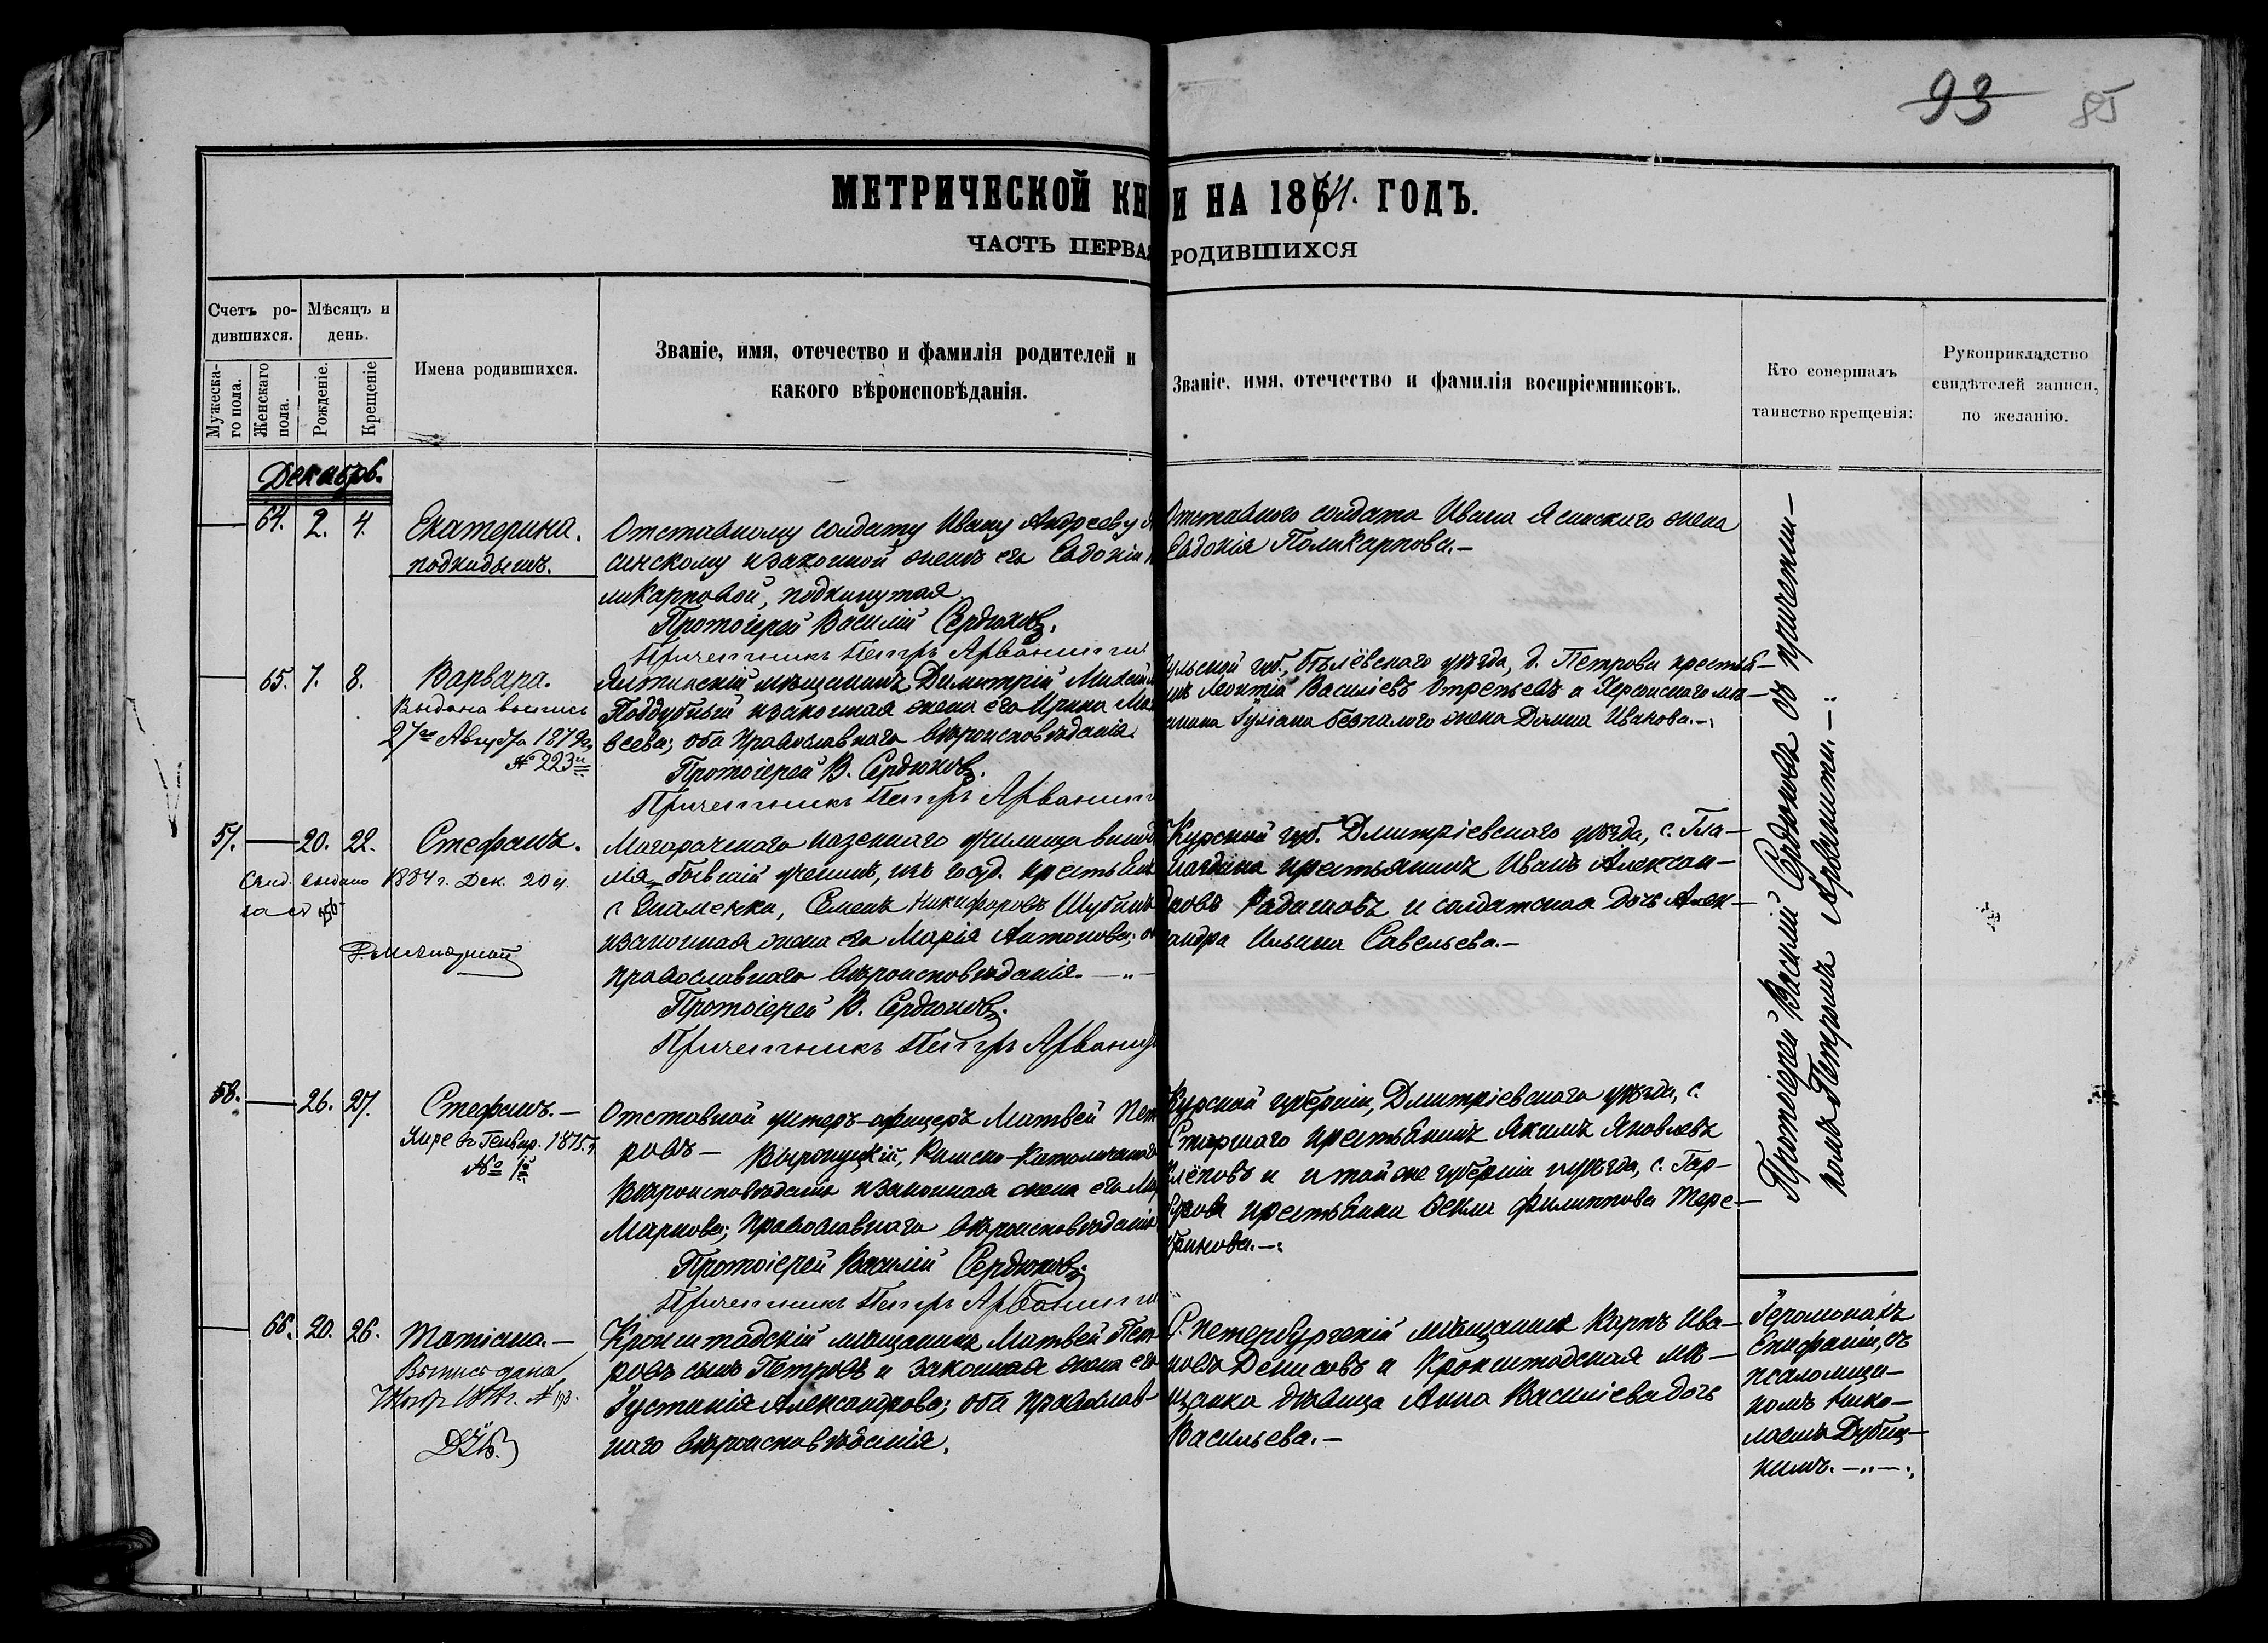 93 85
МЕТРИЧЕСКОЙ КН И НА 1874. ГОДЪ.
ЧАСТЬ ПЕРВАЯ РОДИВШИХСЯ
Счетъ ро-
дившихся.
Мужеска-
го пола.
Женскаго
пола.
Мѣсяцъ и
день.
Рожденіе.
Крещеніе
Имена родившихся.
Званіе, имя, отечество и фамилія родителей и
какого вѣроисповѣданія.
Званіе, имя, отечество и фамилія воспріемниковъ.
Кто совершалъ
таинство крещенія:
Рукоприкладство
свидѣтелей записи,
по желанію.
Декабрь.
64. 2. 4.
Екатерина.
подкидышъ.
Отставному солдату Ивану Андрееву
синскому и законной женѣ его Евдокіи
ликарповой, подкинутая
Протоіерей Василій Сердюковъ.
Причетникъ Петръ Арванити
Отставного солдата Ивана Ясинскаго жена
Евдокія Поликарпова.—
65. 7. 8.
Варвара.
Выдана выпись
27го Августа 1879 г.
№ 223й
Ялтинскій мѣщанинъ Димитрій Михайл
Поддубный и законная жена его Ирина Мат
веева; оба православнаго вѣроисповѣданія.
Протоіерей В. Сердюковъ.
Причетникъ Петръ Арванит
ульской губ., Бѣлёвскаго уѣзда, д. Петрова крестья—
инъ Леонтій Василіевъ Отрепьевъ и Херсонскаго мѣ—
щанина Гуліана безпалого жена Домна Иванова.—:
57. — 20. 22.
Стефанъ.
Свид. выдано 1884 г. Дек. 20 ч.
за №
Магарачскаго казеннаго училища винод
лія, бывшій ученикъ, изъ госуд. крестьянъ
с. Знаменки, Семенъ Никифоровъ Шубинъ
и законная жена его Марія Антонова; об
православнаго вѣроисповѣданія.—"—
Протоіерей В. Сердюковъ.
Причетникъ Петръ Арванит
Курской губ. Дмитріевскаго уѣзда, с. Гла—
крестьянинъ Иванъ Алексан—
ровъ Кадиновъ и солдатская дочь Алек—
андра Ильина Савельева.—
58. — 26. 27.
Стефанъ.—
Умре 6го Генвар. 1875 г.
№ 1й
Отставной унтеръ-офицеръ Матвей Пет
ровъ — Выронуцкій, Римско-Католическаго
вѣроисповѣданія и законная жена его Мар
Маркова; православнаго вѣроисповѣданія
Протоіерей Василій Сердюковъ.
Причетникъ Петръ Арванити
Курской губерніи, Дмитріевскаго уѣзда, с.
Старшаго крестьянинъ Якимъ Яковлевъ
Клёповъ и и той же губерніи и уѣзда, с. Гар—
бузова крестьянка Ѳекла Филиппова Тере—
бринова.—:
66. 20. 26.
Татіана.—
Выпись дана
№ 193.
Кронштадскій мѣщанинъ Матвей Пет
ровъ сынъ Петровъ и законная жена его
Іустинія Александрова; оба православ-
наго вѣроисповѣданія.
С. петербургскій мѣщанинъ Карпъ Ива—
новъ Денисовъ и Кронштадская мѣ—
щанка дѣвица Анна Василіева дочь
Васильева.—
Протоіерей Василій Сердюковъ съ причетни—
комъ Петромъ Арванити.—:
Іеромонахъ
Епифаній, съ
псаломщи—
комъ Нико—
лаемъ Дубиц—
кимъ.—"—: